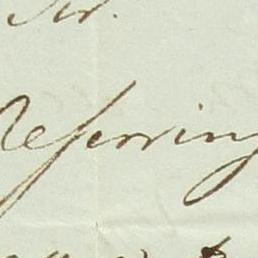 Sir.
Referring